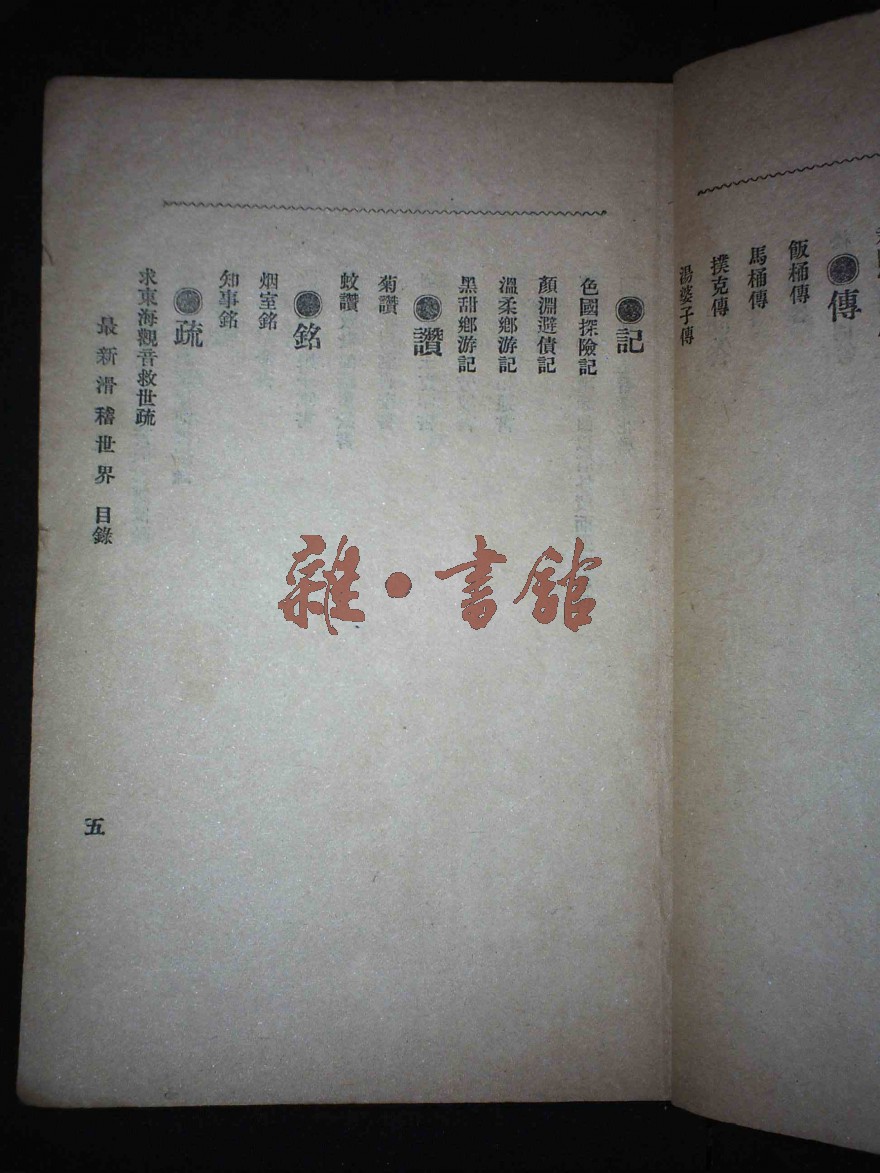 ●傳
飯桶傳
馬桶傳
撲克傳
湯婆子傳
●記
色國探險記
顏淵避債記
溫柔鄉游記
黑甜鄉游記
●讚
菊讚
蚊讚
●銘
烟室銘
知事銘
●疏
求東海觀音救世疏
最新滑稽世界 目錄
五
雜·書館